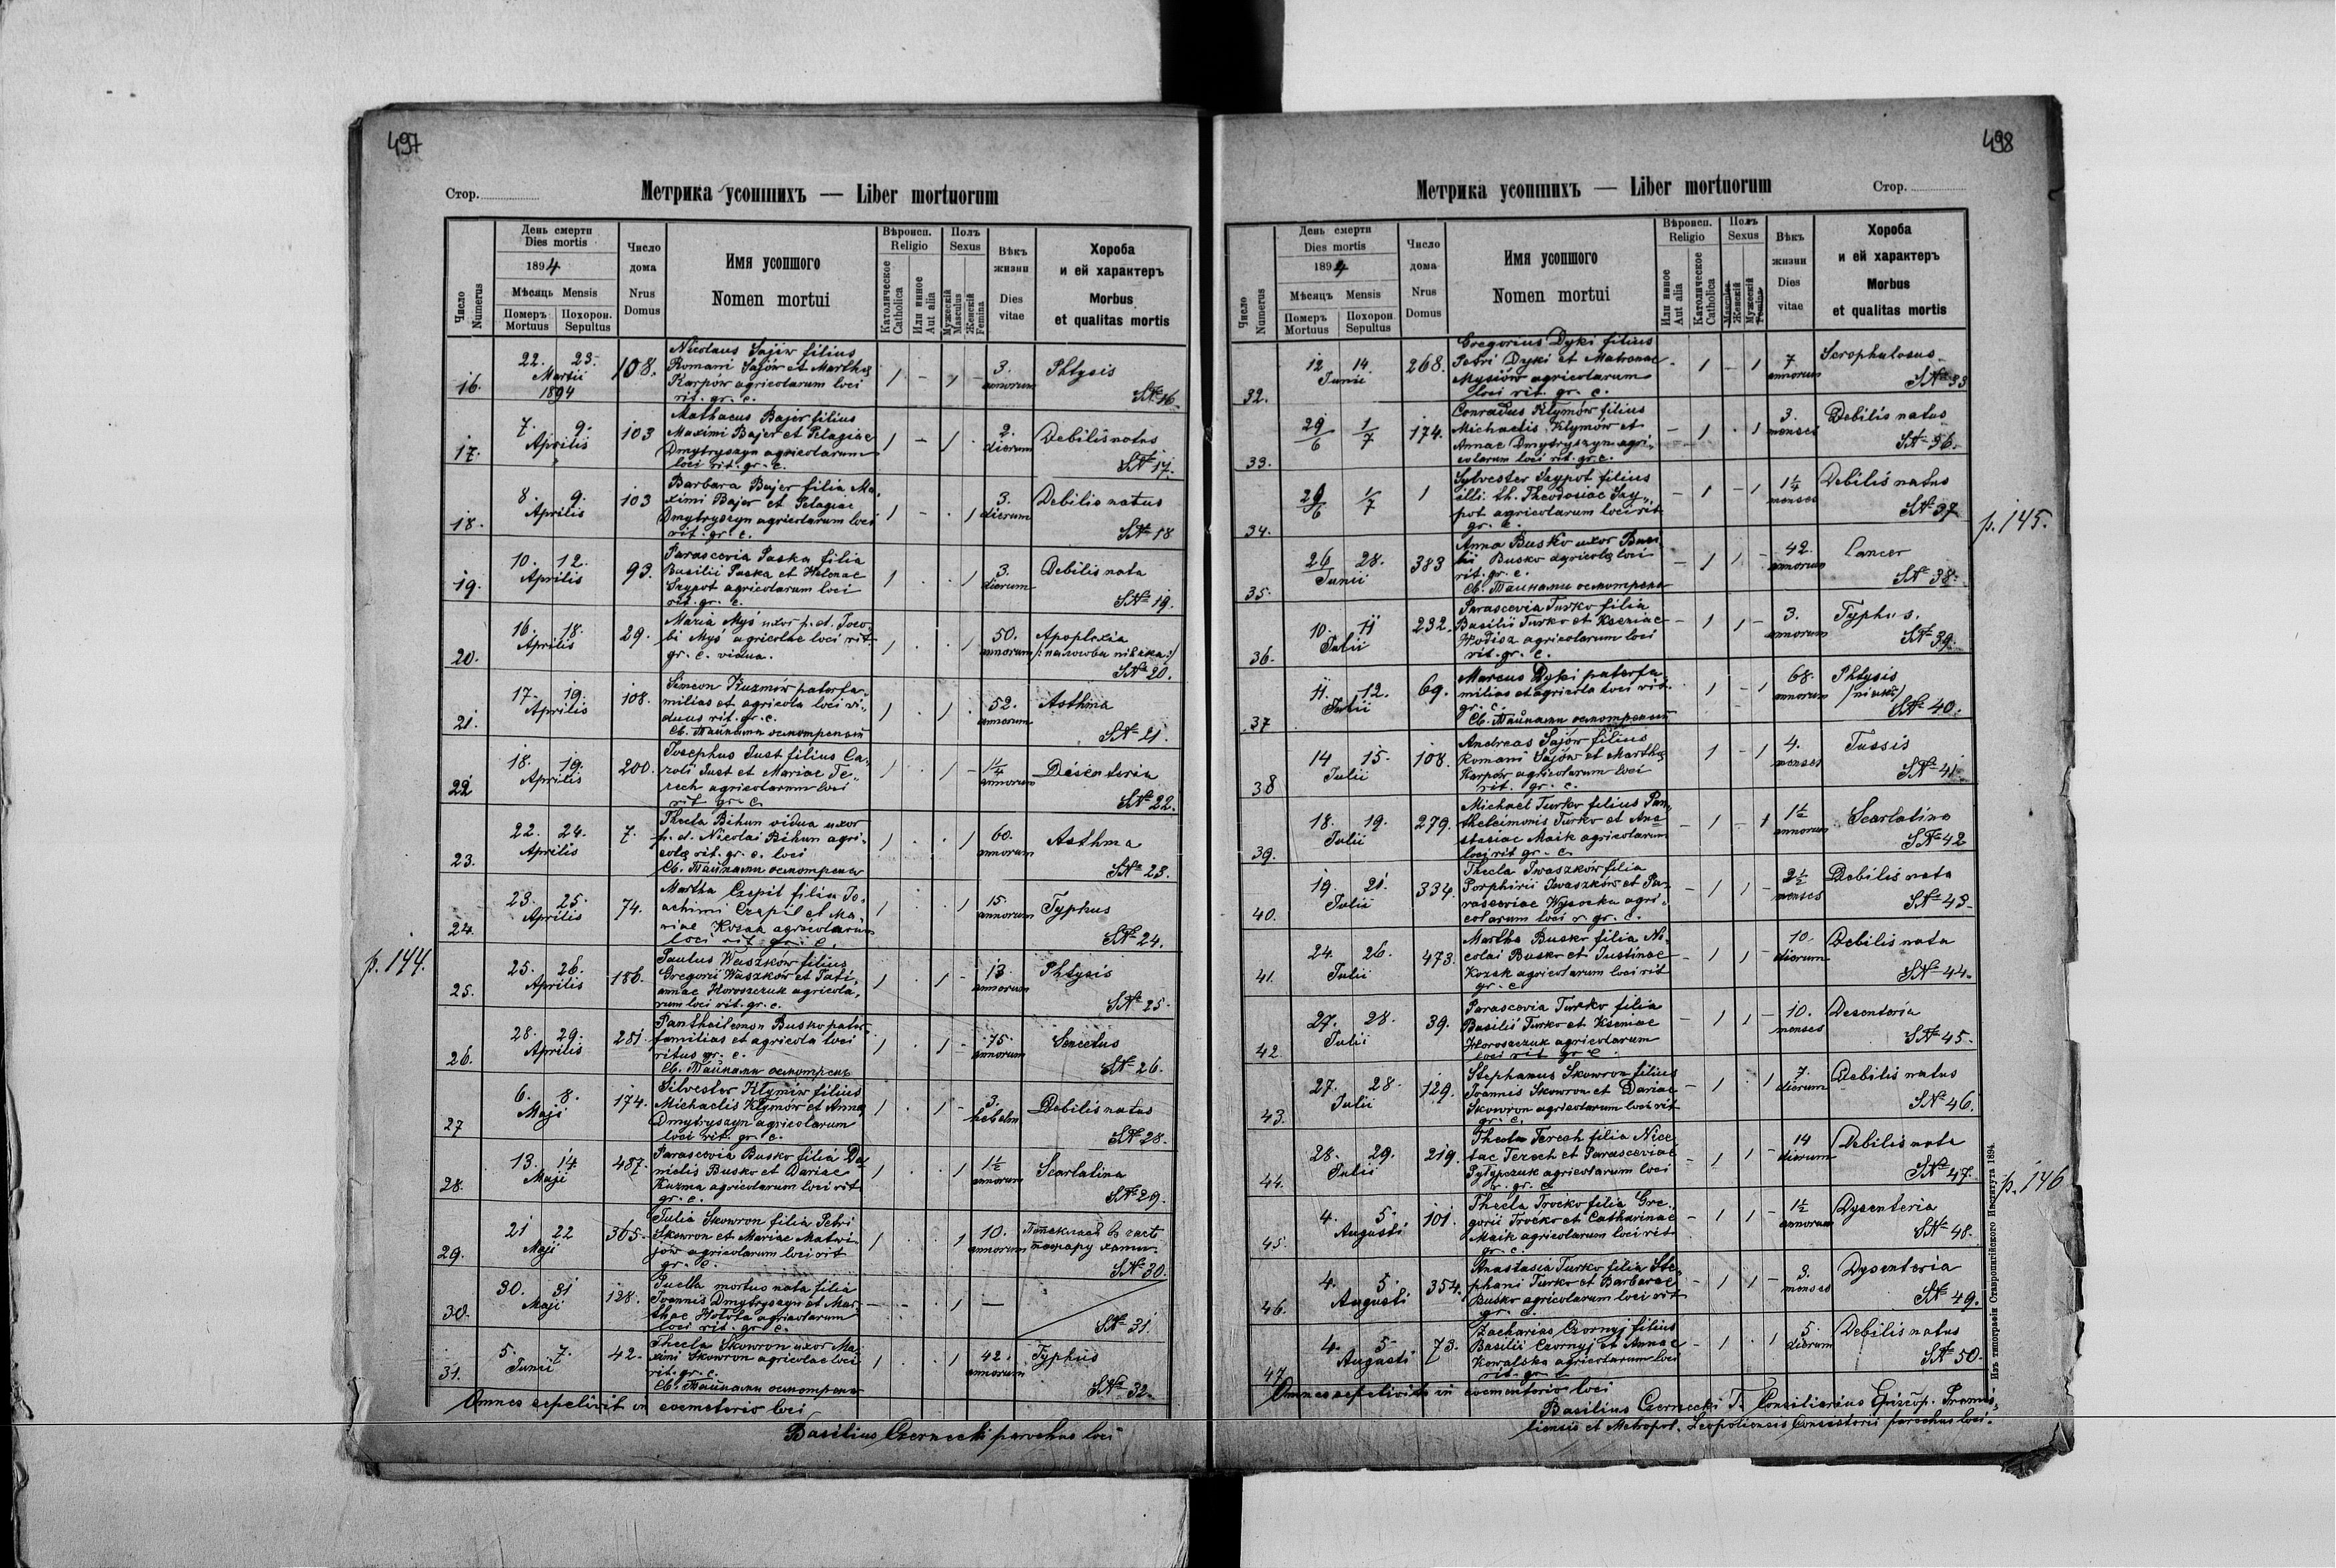 497
Стор.
Метрика усопшихъ — Liber mortuorum
Число Numerus
День смерти
Dies mortis
1894
Мѣсяць Mensis
Померъ Mortuus
Похорон. Sepultus
Число дома
Nrus Domus
Имя усопшого
Nomen mortui
Вѣроисп.
Religio
Католическое Catholica
Или инное Aut alia
Полъ
Sexus
Мужескій Masculus
Женскій Femina
Вѣкъ жизни
Dies vitae
Хороба
и ей характеръ
Morbus
et qualitas mortis
16. 22. 23. Martii 1894 108. Nicolaus Sajów filius
Romani Sajów et Marthę
Karpów agricolarum loci
rit. gr. c. 1 - 1 - 3. annorum Phtysis S№ 16.
17. 7. 9. Aprilis 103 Mathaeus Bajer filius
Maximi Bajer et Pelagiae
Dmytryszyn agricolarum
loci rit. gr. c. 1 - 1 . 2. dierum Debilis natus S№ 17.
18. 8. 9. Aprilis 103 Barbara Bajer filia Ma-
ximi Bajer et Pelagiae
Dmytryszyn agricolarum loci
rit. gr. c. 1 - . 1 3. dierum Debilis natus S№ 18
19. 10. 12. Aprilis 93. Parascevia Paska filia
Basilii Paska et Helenae
Szypot agricolarum loci
rit. gr. c. 1 . . 1 3. dierum Debilis nata S№ 19.
20. 16. 18. Aprilis 29. Maria Myś uxor p. d. Jaco-
bi Myś agricolae loci rit.
gr. c. vidua. 1 . . 1 50. annorum Apoplexia S№ 20.
21. 17. 19. Aprilis 108. Simeon Kuzmów paterfa-
milias et agricola loci vi-
duus rit. gr. c.
Св. Тайнами осмотреный 1 . 1 . 52. annorum Asthma S№ 21.
22 18. 19. Aprilis 200. Josephus Just filius Ca-
roli Just et Mariae Te-
rech agricolarum loci
rit gr. c. 1 . 1 - 1¼ annorum Disenteria S№ 22.
23. 22. 24. Aprilis 7. Thecla Bihun vidua uxor
p. d. Nicolai Bihun agri-
colę rit. gr. c. loci
Св. Тайнами осмотрена 1 . . 1 60. annorum Asthma S№ 23.
24. 23. 25. Aprilis 74. Martha Czepil filia Jo-
achimi Czepil et Ma-
riae Kozak agricolarum
loci rit. gr. c. 1 . . 1 15. annorum Typhus S№ 24.
p. 144.
25. 25. 26. Aprilis 186. Paulus Waszków filius
Gregorii Waszków et Tati-
annae Horoszczuk agricola-
rum loci rit. gr. c. 1 . 1 - 13 annorum Phtysis S№ 25
26. 28. 29. Aprilis 281. Panthailemon Busko pater-
familias et agricola loci
ritus gr. c.
Св. Тайнами осмотрен 1 . 1 - 75. annorum Senectus S№ 26.
27 6. 8. Maji 174. Silvester Klymów filius
Michaelis Klymów et Annę
Dmytryszyn agricolarum
loci rit. gr. c. 1 . 1 - 3. hebdm Debilis natus S№ 28.
28. 13. 14. Maji 487. Parascevia Busko filia Da-
nielis Busko et Dariae
Kuzma agricolarum loci rit
gr. c. 1 . . 1 1½ annorum Scarlatina S№ 29.
29. 21 22 Maji 365. Julia Skowron filia Petri
Skowron et Mariae Matwi-
jów agricolarum loci rit
gr. c. 1 . . 1 10. annorum S№ 30.
30. 30. 31 Maji 128. Puella mortua nata filia
Joannis Dmytryszyn et Mar-
thae Holota agricolarum
loci rit. gr c. - - . 1 — S№ 31.
31. 5. 7. Junii 42. Thecla Skowron uxor Ma-
ximi Skowron agricolae loci
rit. gr. c.
Св. Тайнами осмотрена 1 . . 1 42. annorum Typhus S№ 32.
Omnes sepelivit in coemeterio loci
Basilius Czernecki parochus loci
498
Метрика усопшихъ — Liber mortuorum
Стор.
Число Numerus
День смерти
Dies mortis
1894
Мѣсяць Mensis
Померъ Mortuus
Похорон. Sepultus
Число дома
Nrus Domus
Имя усопшого
Nomen mortui
Вѣроисп.
Religio
Или инное Aut alia
Католическое Catholica
Полъ
Sexus
Masculus Женскій
Мужескій Femina
Вѣкъ жизни
Dies vitae
Хороба
и ей характеръ
Morbus
et qualitas mortis
32. 12 14 Junii 268. Gregorius Dyki filius
Petri Dyki et Matronae
Mysiów agricolarum
loci rit. gr. c. - 1 - 1 7 annorum Scrophulosus S№ 33
33. 29/6 1/7 174. Conradus Klymów filius
Michaelis Klymów et
Annae Dmytryszyn agri-
colarum loci rit. gr. c. - 1 . 1 3. menses Debilis natus S№ 36.
34. 29/6 1/7 1 Sylvester Szypot filius
illi. th. Theodosiae Szy-
pot agricolarum loci rit
gr. c. - 1 - 1 1¼ menses Debilis natus S№ 37
p. 145.
35. 26 28. Junii 383 Anna Busko uxor Basi-
lii Busko agricolę loci
rit. gr. c.
Св. Тайнами осмотрена - 1 1 - 42. annorum Cancer S№ 38.
36. 10. 11 Julii 232. Parascevia Turko filia
Basilii Turko et Kseniae
agricolarum loci
rit. gr. c. - 1 1 - 3. annorum Typhus. S№ 39.
37 11. 12. Julii 69. Marcus Dyki paterfa-
milias et agricola loci rit.
gr. c.
Св. Тайнами осмотреный . 1 - 1 68. annorum Phtysis S№ 40.
38 14 15. Julii 108. Andreas Sajów filius
Romani Sajów et Marthę
Karpów agricolarum loci
rit. gr. c. 1 - 1 4. menses Tussis S№ 41.
39. 18. 19. Julii 279. Michael Turko filius Pan-
theleimonis Turko et Ana-
stasiae Maik agricolarum
loci rit gr. c. - 1 - 1 1½ annorum Scarlatina S№ 42
40. 19. 21. Julii 334. Thecla Iwaszków filia
Porphirii Iwaszków et Pa-
rasceviae Wysocka agri-
colarum loci r. gr. c. - 1 1 - 2½ menses Debilis nata S№ 43.
41. 24. 26. Julii 473. Martha Busko filia Ni-
colai Busko et Justinae
Kozak agricolarum loci rit
gr. c. - 1 1 - 10. dierum Debilis nata S№ 44.
42 27. 28. Julii 39. Parascevia Turko filia
Basilii Turko et Kseniae
Horoszczuk agricolarum
loci rit gr c. - 1 1 - 10. menses Desenteria S№ 45.
43. 27. 28. Julii 129. Stephanus Skowron filius
Joannis Skowron et Dariae
Skowron agricolarum loci rit
gr. c. - 1 . 1 7. dierum Debilis natus S№ 46.
44. 28. 29. Julii 219. Thecla Terech filia Nice-
tae Terech et Parasceviae
Pylypczuk agricolarum loci
r. gr. c. - 1 1 - 14 dierum Debilis nata S№ 47.
p. 146
45. 4. 5. Augusti 101. Thecla Trocko filia Gre-
gorii Trocko et Catharinae
Maik agricolarum loci rit
gr. c. - 1 1 - 1½ annorum Dysenteria S№ 48.
46. 4. 5. Augusti 354. Anastasia Turko filia Ste-
phani Turko et Barbarae
Busko agricolarum loci rit
gr. c. - 1 1 - 3. menses Dysenteria S№ 49.
47 4. 5. Augusti 73. Zacharias Czornyj filius
Basilii Czornyj et Annae
Kowalska agricolarum loci
rit. gr. c. - 1 . 1 5. dierum Debilis natus S№ 50.
Omnes sepelivit in coemeterio loci
Basilius Czernecki Consiliarius Episcop. Premis-
liensis et Metropol. Leopoliensis Consistorii parochus loci.
Изъ типографіи Ставропигійского Института 1894.